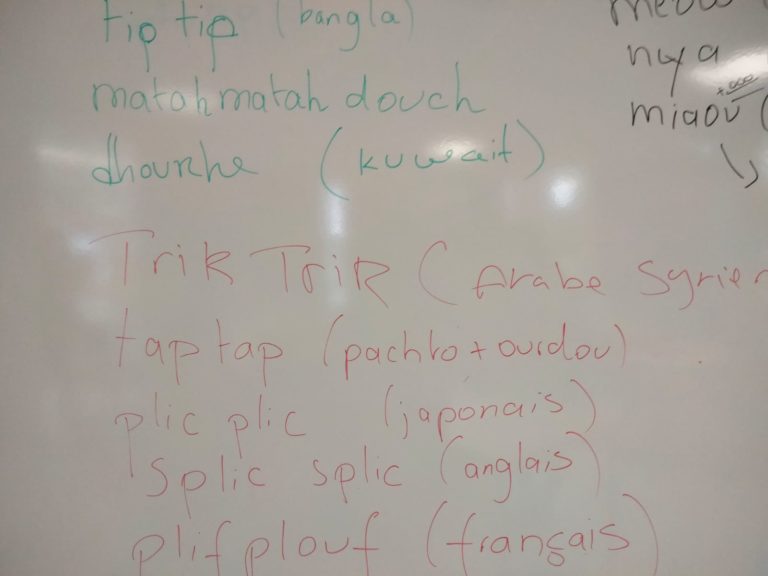 tip tip (bangla)
matah matah douch
dhourhe (kuwait)
Trik Trik (Arabe Syrien
tap tap (pachto + ourdou)
plic plic (japonais)
splic splic (anglais)
plif plouf (français)
meow
nya
miaou (